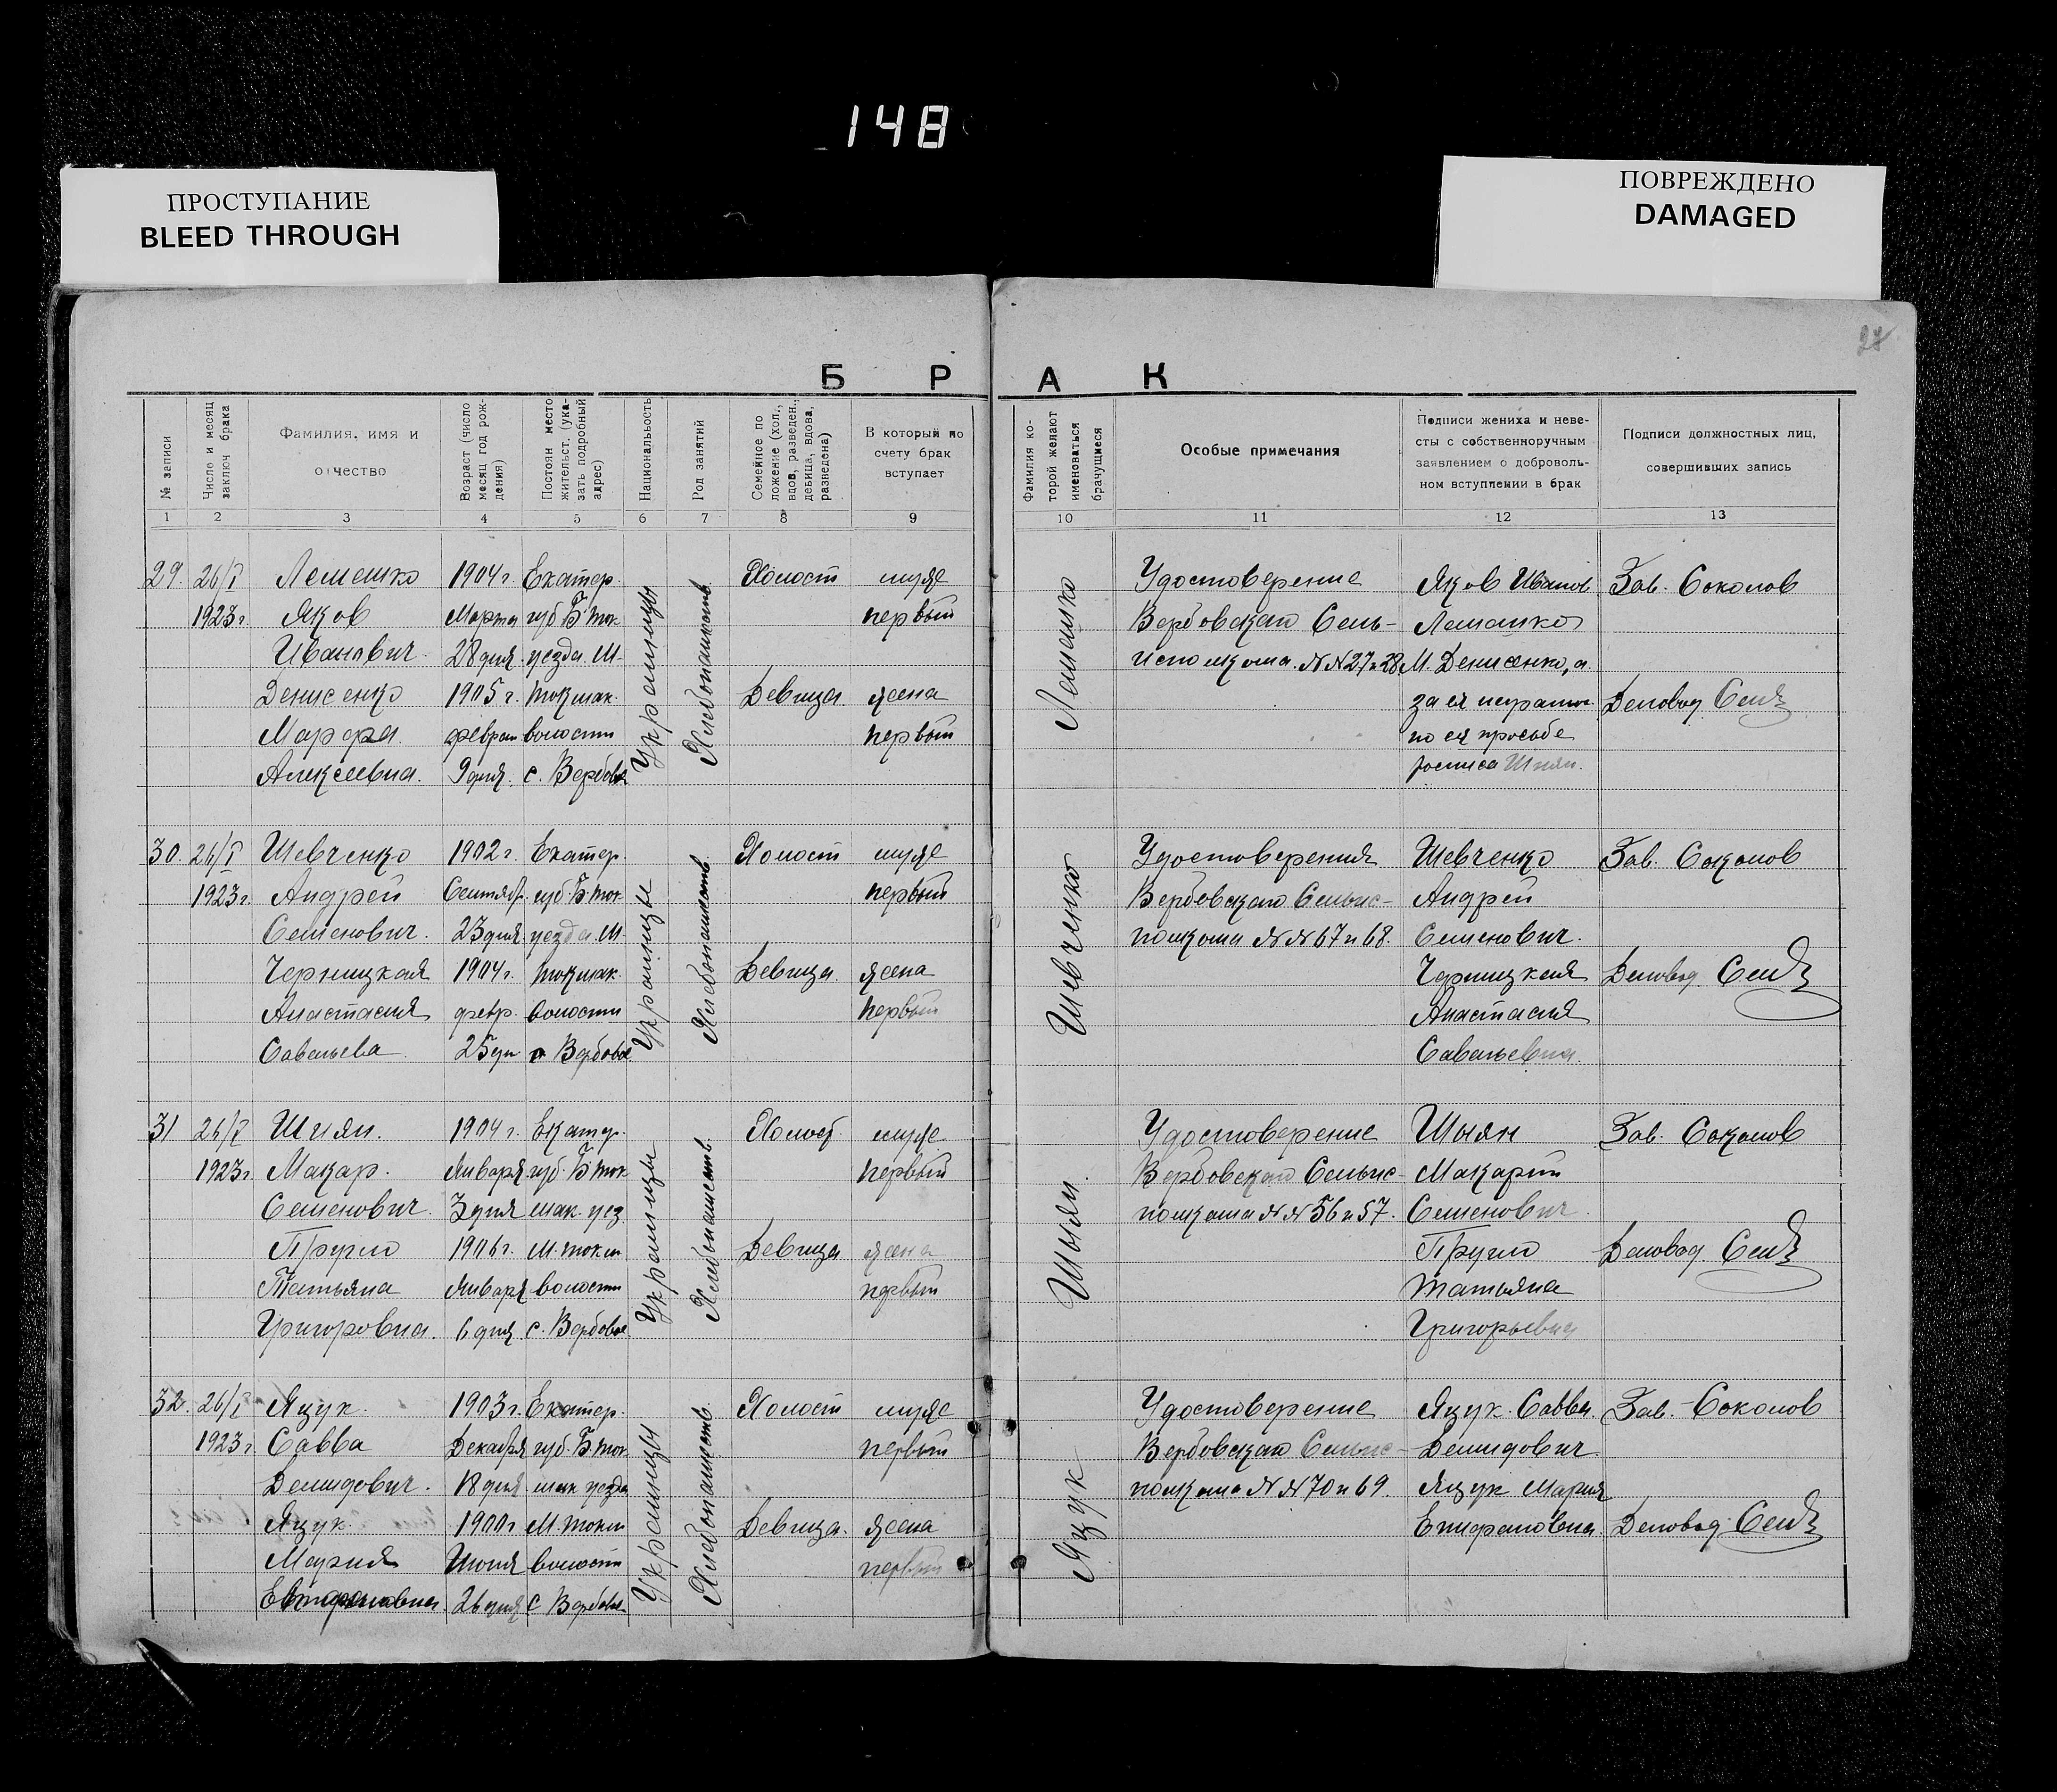 148
ПРОСТУПАНИЕ
BLEED THROUGH
ПОВРЕЖДЕНО
DAMAGED
Б Р А К
№ записи
Число и месяц заключ брака
Фамилия, имя и отчество
Возраст (число месяц год рождения)
Постоян место жительст. (указать подробный адрес)
Национальность
Род занятий
Семейное положение (хол., вдов, разведен., девица, вдова, разведена)
В который по счету брак вступает
Фамилия которой желают именоваться брачущиеся
Особые примечания
Подписи жениха и невесты с собственноручным заявлением о добровольном вступлении в брак
Подписи должностных лиц, совершивших запись
1 2 3 4 5 6 7 8 9 10 11 12 13
29. 26/I Лемешко 1904 г. Екатер. Холост муже Удостоверение Яков Иванов Зав. Соколов
1923 г Яков Марта губ Б. Ток первый Вербовскаго Сель- Лемешко
Иванович. 28 дня уезда М- исполкома №№ 27 и 28 М. Денисенко, а
Денисенко 1905 г. Токмак. Девица жена за ея неграмот. Деловод.
Марфа феврал волости первый по ея просьбе
Алексеевна. 9 дня. с. Вербовое росписа Шиян.
Украинцы
Хлебопашеств.
Лемешко
30. 26/I Шевченко 1902 г. Екатер. Холост муже Удостоверения Шевченко Зав. Соколов
1923 г. Андрей Сентябр. губ. Б. Ток. первый Вербовскаго Сельис- Андрей
Семенович. 23 дня уезда М- полкома №№ 67 и 68. Семенович.
Черницкая 1904 г. Токмак. Девица. жена Черницкая Деловод.
Анастасия февр. волости первый Анастасия
Савельева 25 дн с Вербовое Савельевна.
Украинцы
Хлебопашеств.
Шевченко
31 26/I Шиян. 1904 г. Екатер. Холост. муже Удостоверение Шыян Зав. Соколов
1923 г. Макар. Января губ. Б. Ток первый Вербовскаго Сельис- Макарий
Семенович. 3 дня мак. уез полкома №№ 56 и 57. Семенович.
1906 г. М. Токм Девица жена Деловод.
Татьяна Января волости первый Татьяна
Григоровна. 6 дня с. Вербовое Григорьевна
Украинцы
Хлебопашеств.
Шыян.
32. 26/I Яцук. 1903 г. Екатер. Холост муже Удостоверение Яцук Савва Зав. Соколов
1923 г. Савва Декабря губ. Б. Ток. первый Вербовскаго Сельис- Демидович
Демидович. 18 дня. мак уезда полкома №№ 70 и 69. Яцук Мария
Яцук. 1900 г М. Токм Девица. жена Епифановна. Деловод.
Мария Июня волости первый
26 дня с Вербовое
Украинцы
Хлебопашеств.
Яцук